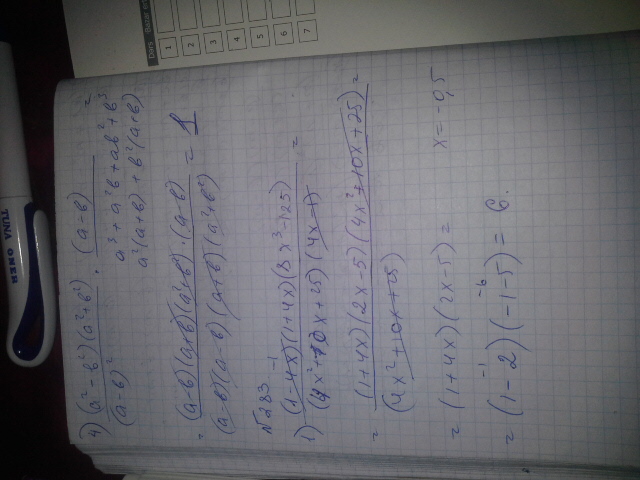 4) (a² - b²)(a² + b²) / (a - b)² · (a - b) / a³ + a²b + ab² + b³ =
a²(a + b) + b²(a + b)
= (a - b)(a + b)(a² + b²) · (a - b) / (a - b)(a - b)(a + b)(a² + b²) = 1
№283
1) (1 - 4x)⁻¹(1 + 4x)(8x³ - 125) / (4x² + 10x + 25)(4x - 1) =
= (1 + 4x)(2x - 5)(4x² + 10x + 25) / (4x² + 10x + 25) =
= (1 + 4x)(2x - 5) = x = -0,5
= (1 - 2)(-1 - 5) = 6.
-1 -6
Dars
1
2
3
4
5
6
7
TUNA